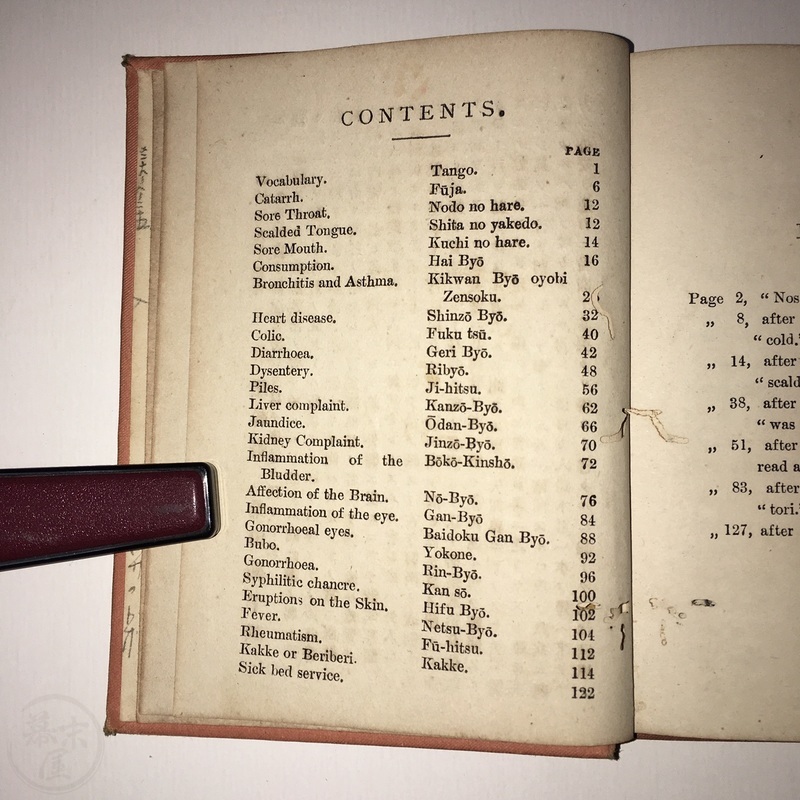 CONTENTS.
PAGE
Vocabulary. Tango. 1
Catarrh. Fūja. 6
Sore Throat. Nodo no hare. 12
Scalded Tongue. Shita no yakedo. 12
Sore Mouth. Kuchi no hare. 14
Consumption. Hai Byō 16
Bronchitis and Asthma. Kikwan Byō oyobi
Zensoku.
Heart disease. Shinzō Byō. 32
Colic. Fuku tsū. 40
Diarrhoea. Geri Byō. 42
Dysentery. Ribyō. 48
Piles. Ji-hitsu. 56
Liver complaint. Kanzō-Byō. 62
Jaundice. Ōdan-Byō. 66
Kidney Complaint. Jinzō-Byō. 70
Inflammation of the Bōkō-Kinshō. 72
Bludder.
Affection of the Brain. Nō-Byō. 76
Inflammation of the eye. Gan-Byō 84
Gonorrhoeal eyes. Baidoku Gan Byō. 88
Bubo. Yokone. 92
Gonorrhoea. Rin-Byō. 96
Syphilitic chancre. Kan sō. 100
Eruptions on the Skin. Hifu Byō. 102
Fever. Netsu-Byō. 104
Rheumatism. Fū-hitsu. 112
Kakke or Beriberi. Kakke. 114
Sick bed service. 122
Page 2, “ Nos
„ 8, after
“ cold.”
„ 14, after
“ scald
„ 38, after
“ was
„ 51, after
read a
„ 83, after
“ tori.”
„ 127, after
幕末屋